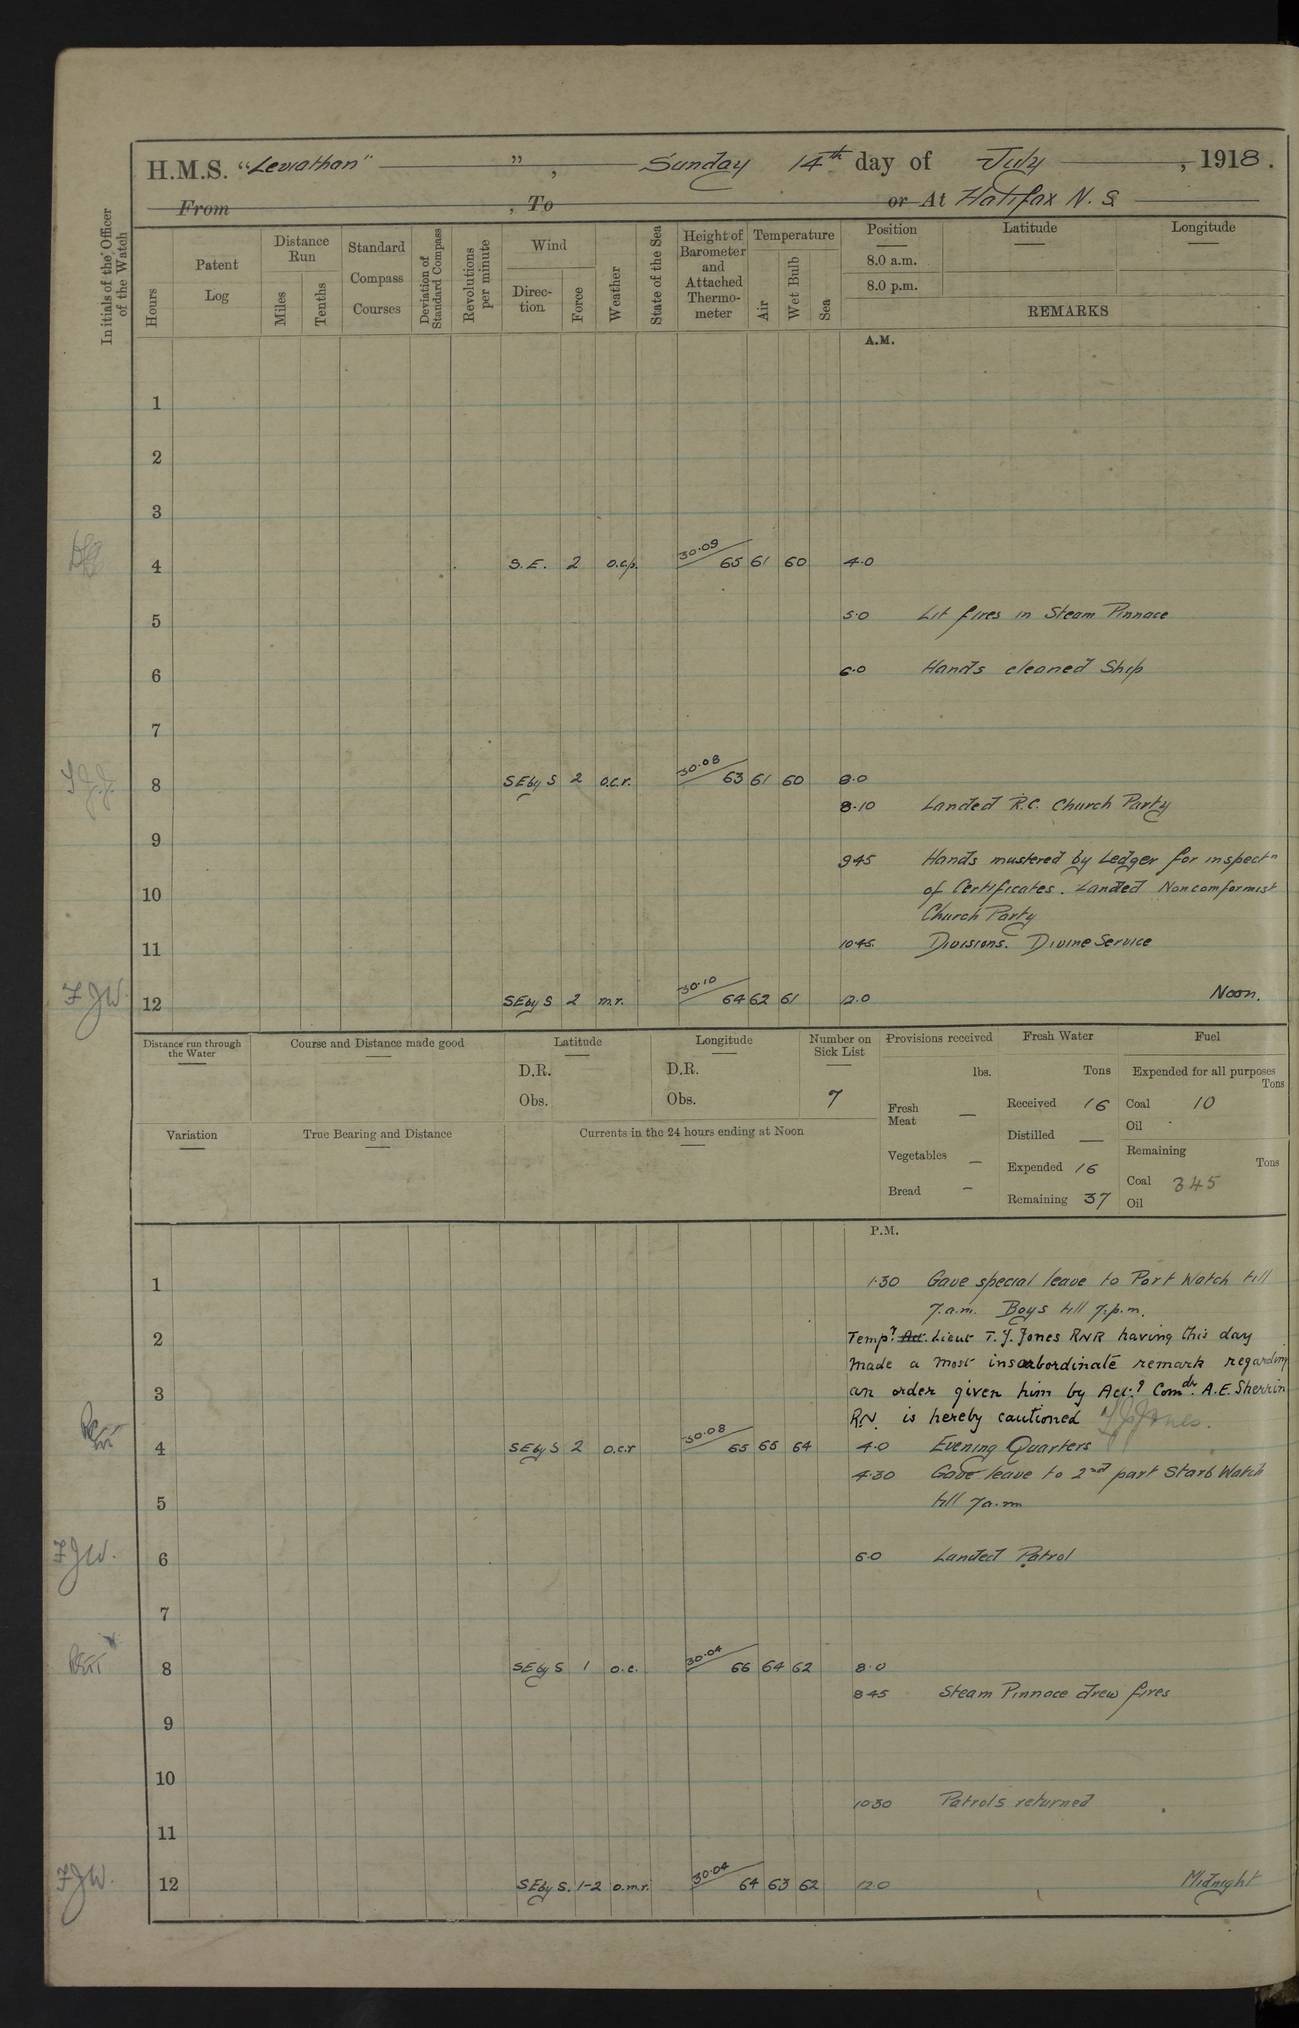 H.M.S. "Leviathan" ", Sunday 14th day of July, 1918.
From , To or At Halifax N.S.
Initials of the Officer of the Watch
Hours
Patent Log
Distance Run
Miles
Tenths
Standard Compass Courses
Deviation of Standard Compass
Revolutions per minute
Wind
Direc-tion
Force
Weather
State of the Sea
Height of Barometer and Attached Thermo-meter
Temperature
Air
Wet Bulb
Sea
Position
8.0 a.m.
8.0 p.m.
Latitude
Longitude
REMARKS
A.M.
1
2
3
4 S.E. 2 o.c.p. 30.09 65 61 60 4.0
5 5.0 Lit fires in Steam Pinnace
6 6.0 Hands cleaned Ship
7
8 SEbyS 2 o.c.r. 30.08 63 61 60 8.0
8.10 Landed R.C. Church Party
9
9.45 Hands mustered by Ledger for inspectn
10 of Certificates. Landed Noncomformist
Church Party
11 10.45 Divisions. Divine Service
F JW. 12 SEbyS 2 m.r. 30.10 64 62 61 12.0 Noon.
Distance run through the Water
Course and Distance made good
Latitude
D.R.
Obs.
Longitude
D.R.
Obs.
Number on Sick List
7
Provisions received
lbs.
Fresh Meat —
Vegetables —
Bread -
Fresh Water
Tons
Received 16
Distilled —
Expended 16
Remaining 37
Fuel
Expended for all purposes
Tons
Coal 10
Oil -
Remaining
Tons
Coal 345
Oil
Variation
True Bearing and Distance
Currents in the 24 hours ending at Noon
P.M.
1 1.30 Gave special leave to Port Watch till
7.a.m. Boys till 7.p.m.
2 Tempy Act. Lieut T.J. Jones RNR having this day
made a most insubordinate remark regarding
3 an order given him by Actg Comdr. A.E. Sherrin
R.N. is hereby cautioned TJJones.
4 SEbyS 2 o.c.r 30.08 65 65 64 4.0 Evening Quarters
4.30 Gave leave to 2nd part Starb Watch
5 till 7a.m
F JW. 6 6.0 Landed Patrol
7
8 SEbyS 1 o.c. 30.04 66 64 62 8.0
8.45 Steam Pinnace drew fires
9
10
10.30 Patrols returned
11
F JW. 12 SEbyS. 1-2 o.m.r. 30.04 64 63 62 12.0 Midnight